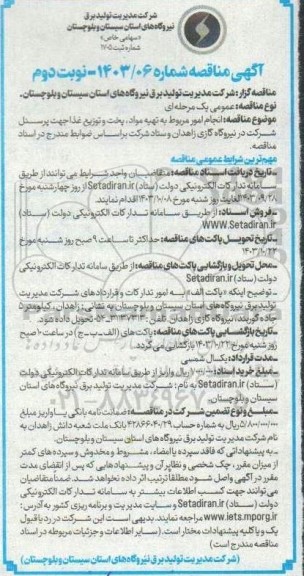 شرکت مدیریت تولید برق
نیروگاه های استان سیستان و بلوچستان
«سهامی خاص»
شماره ثبت ۱۷۰۵
آگهی مناقصه شماره ۱۴۰۳/۰۶ - نوبت دوم
مناقصه گزار: شرکت مدیریت تولید برق نیروگاه های استان سیستان و بلوچستان.
نوع مناقصه: عمومی یک مرحله ای
موضوع مناقصه: انجام امور مربوط به تهیه مواد، پخت و توزیع غذا جهت پرسنل
شرکت در نیروگاه گازی زاهدان و ستاد شرکت براساس ضوابط مندرج در اسناد
مناقصه.
مهم ترین شرایط عمومی مناقصه
- تاریخ دریافت اسناد مناقصه: متقاضیان واجد شرایط می توانند از طریق
سامانه تدارکات الکترونیکی دولت (ستاد) Setadiran.ir از روز چهارشنبه مورخ
۱۴۰۳/۰۹/۲۸ لغایت روز شنبه مورخ ۱۴۰۳/۱۰/۰۸ اقدام نمایند.
- فروش اسناد: از طریق سامانه تدارکات الکترونیکی دولت (ستاد)
WWW.Setadiran.ir
- تاریخ تحویل پاکت های مناقصه: حداکثر تا ساعت ۹ صبح روز شنبه مورخ
- محل تحویل و بازگشایی پاکت های مناقصه: از طریق سامانه تدارکات الکترونیکی
دولت (ستاد) Setadiran.ir
- توضیح اینکه «پاکت الف» به امور تدارکات و قراردادهای شرکت مدیریت
تولید برق نیروگاه های استان سیستان و بلوچستان به نشانی: زاهدان، کیلومتر
جاده نیروگاه گازی زاهدان تلفن تحویل داده شود.
- تاریخ بازگشایی پاکت های مناقصه: پاکت های (الف - ب - ج) در ساعت ۱۰ صبح
روز شنبه مورخ ۱۴۰۳/۱۰/۲۲ بازگشایی می گردد.
- مدت قرارداد: یکسال شمسی
- مبلغ خرید اسناد: ریال واریز از طریق سامانه تدارکات الکترونیکی دولت
(ستاد) Setadiran.ir به نام: شرکت مدیریت تولید برق نیروگاه های استان
سیستان و بلوچستان.
- مبلغ و نوع تضمین شرکت در مناقصه: ضمانت نامه بانکی یا واریز مبلغ
ریال به شماره حساب بانک ملت شعبه دانش زاهدان به
نام شرکت مدیریت تولید برق نیروگاه های استان سیستان و بلوچستان.
- به پیشنهاداتی که فاقد سپرده یا امضاء، مشروط و مخدوش و سپرده های کمتر
از میزان مقرر، چک شخصی و نظایر آن و پیشنهادهایی که پس از انقضای مدت
مقرر در آگهی واصل شود مطلقا ترتیب اثر داده نخواهد شد. ضمنا متقاضیان
می توانند جهت کسب اطلاعات بیشتر به سامانه تدارکات الکترونیکی
دولت (ستاد) Setadiran.ir و سایت مدیریت و برنامه ریزی کشور به آدرس:
www.iets.mporg.ir مراجعه نمایند. بدیهی است این شرکت در رد یا قبول
یک و یا کلیه پیشنهادات مختار است. (سایر اطلاعات و جزئیات مربوطه در اسناد
مناقصه مندرج است)
(شرکت مدیریت تولید برق نیروگاه های استان سیستان و بلوچستان)